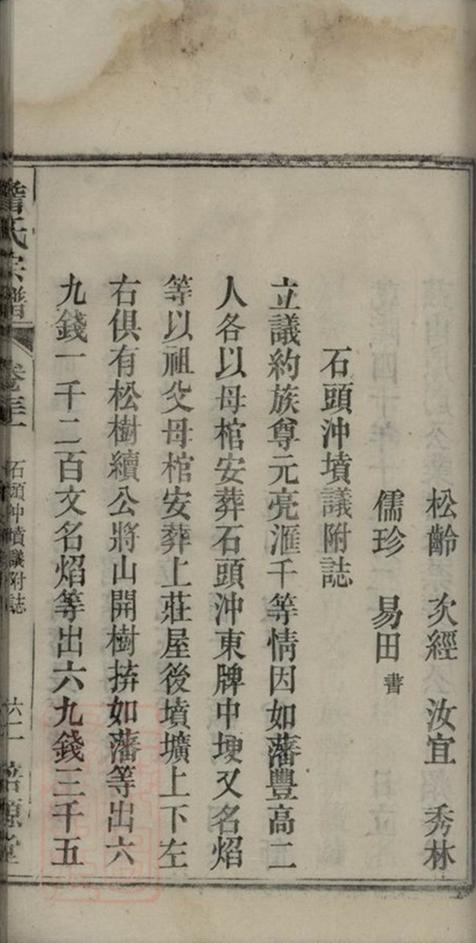 松齡　次經　汝宜　秀林
儒珍　易田 書
石頭沖墳議附誌
立議約族尊元亮滙千等情因如藩豐高二
人各以母棺安葬石頭沖東牌中埂又名焰
等以祖父母棺安葬上莊屋後墳壙上下左
右俱有松樹續公將山開樹拚如藩等出六
九錢一千二百文名焰等出六九錢三千五
氏宗譜
卷三
石頭沖墳議附誌
六二
堂